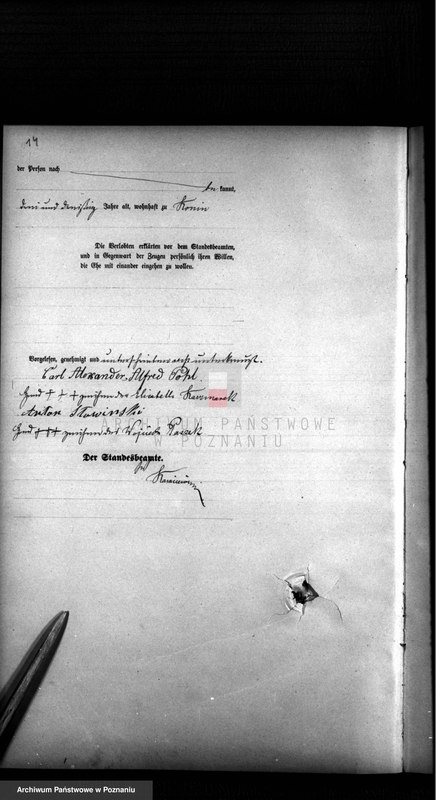 14
der Person nach
be kannt,
drei und dreißig Jahre alt, wohnhaft zu Konin
Die Verlobten erklärten vor dem Standesbeamten,
und in Gegenwart der Zeugen persönlich ihren Willen,
die Ehe mit einander eingehen zu wollen.
Vorgelesen, genehmigt und
Carl Alexander Alfred Pohl.
Hand † † † zeichen der Elisabeth Kaczmarek
Anton Slawinski
Hand † † † zeichen des
ARCHIWUM PAŃSTWOWE
W POZNANIU
Der Standesbeamte.
Archiwum Państwowe w Poznaniu